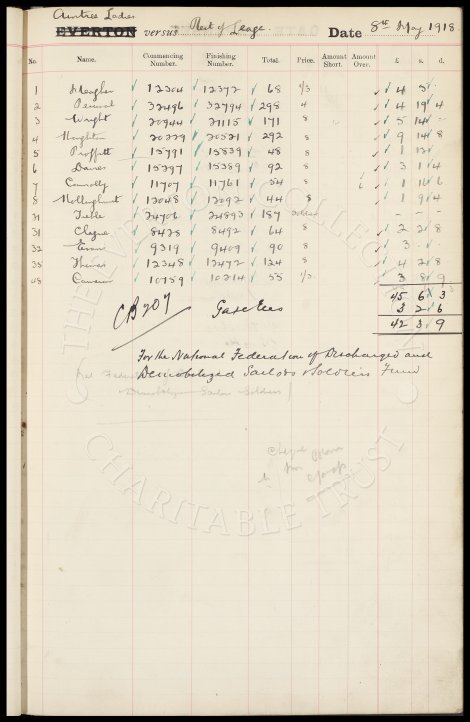 Aintree Ladies
EVERTON versus Rest of League. Date 8th May 1918.
No. Name. Commencing Number. Finishing Number. Total. Price. Amount Short. Amount Over. £ s. d.
1 Meagher 12304 12372 68 1/3 4 5 -
2 Percival 32496 32794 298 4 4 19 4
3 Wright 20944 21115 171 8 5 14 -
4 Houghton 20229 20521 292 8 9 14 8
5 Proffitt 15791 15839 48 8 1 12 -
6 Davies 15297 15389 92 8 3 1 4
7 Connolly 11707 11761 54 8 1 16 6
8 Mollinghurst 12048 12092 44 8 1 9 4
21 Treble 24706 24893 187 - - -
31 Clague 8428 8492 64 8 2 2 8
32 Evans 9319 9409 90 8 3 - -
35 Thomas 12348 12472 124 8 4 2 8
48 Cameron 10159 10214 55 1/3 3 8 9
45 6 3
CB 207 Gate Fees 3 2 6
42 3 9
For the National Federation of Discharged and
Demobilized Sailors & Soldiers Fund
THE EVERTON COLLECTION
CHARITABLE TRUST